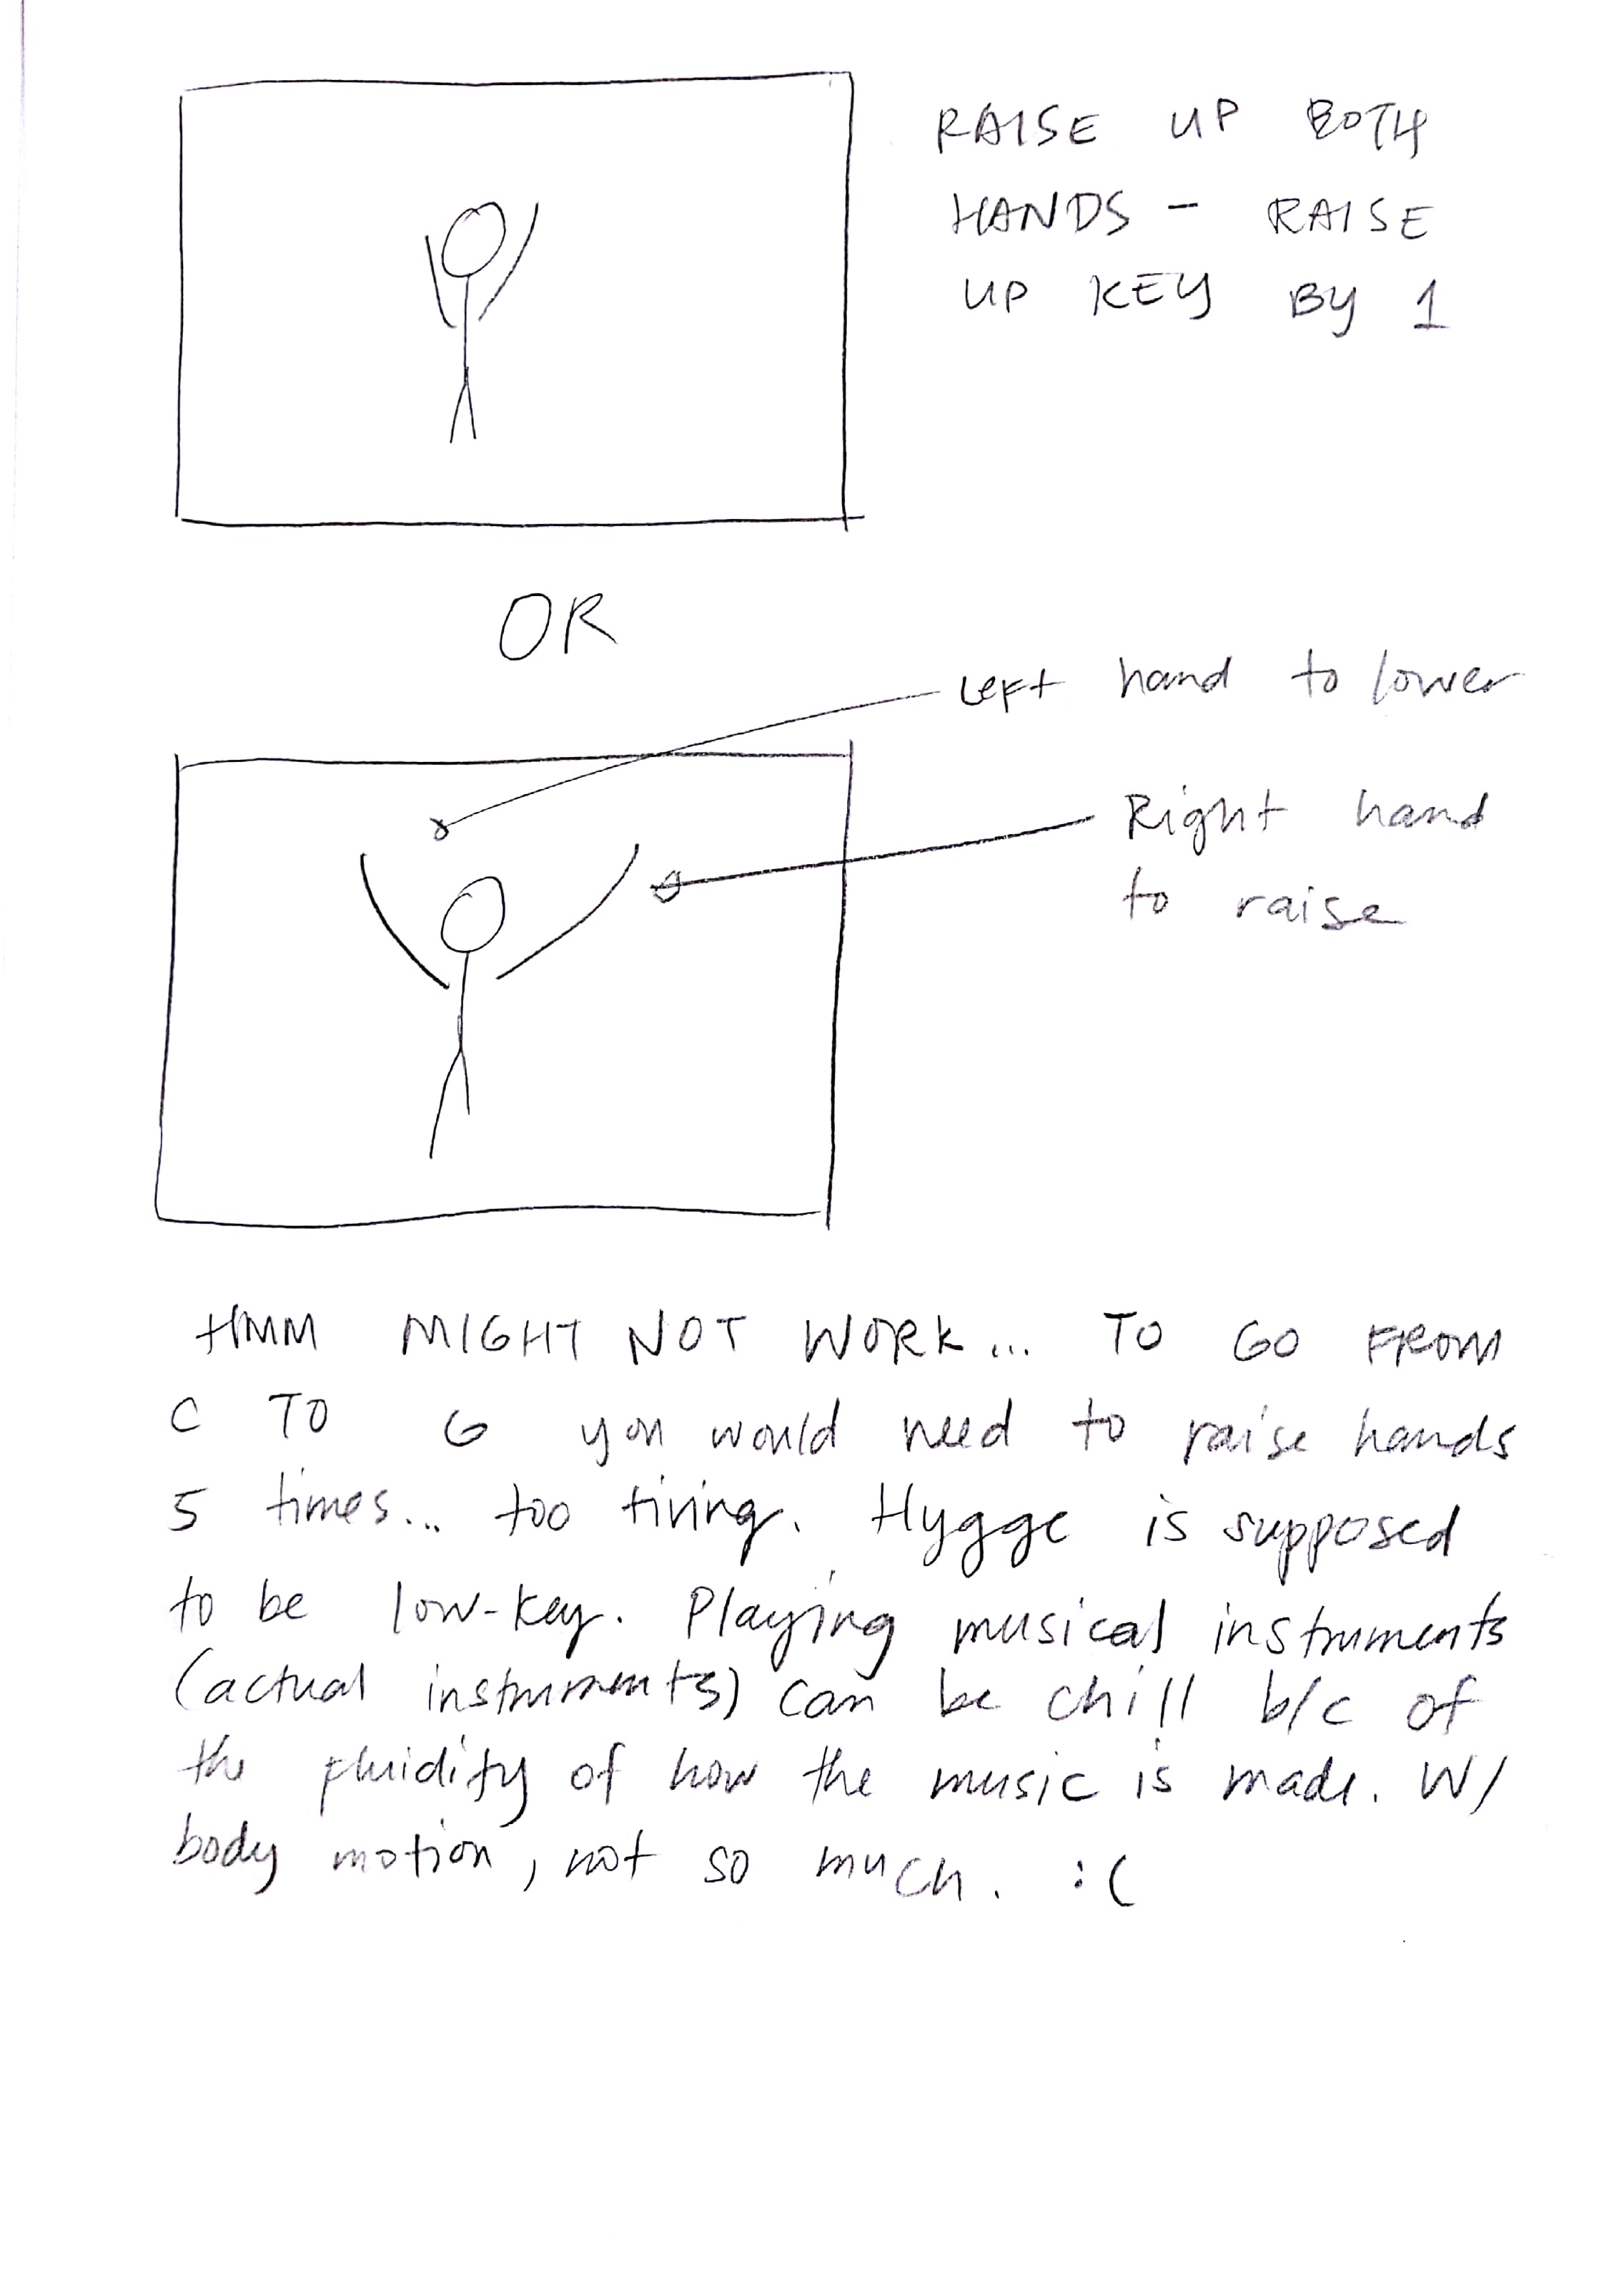 RAISE UP BOTH
HANDS - RAISE
UP KEY BY 1
OR
Left hand to lower
Right hand
to raise
HMM MIGHT NOT WORK... TO GO FROM
C TO G you would need to raise hands
5 times... too tiring. Hygge is supposed
to be low-key. Playing musical instruments
(actual instruments) can be chill b/c of
the fluidity of how the music is made. W/
body motion, not so much. :(